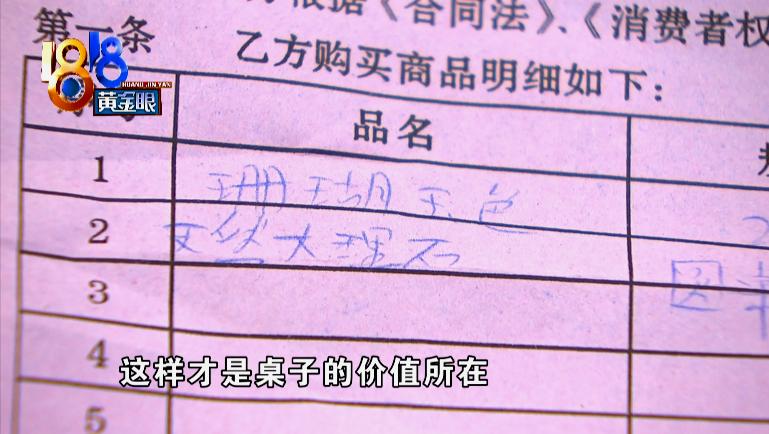 根据《合同法》、《消费者权
第一条 乙方购买商品明细如下：
1818
HUANG JIN YAN
黄金眼
品名
1 珊瑚玉色
2 天然大理石
3 圆
4
5
这样才是桌子的价值所在